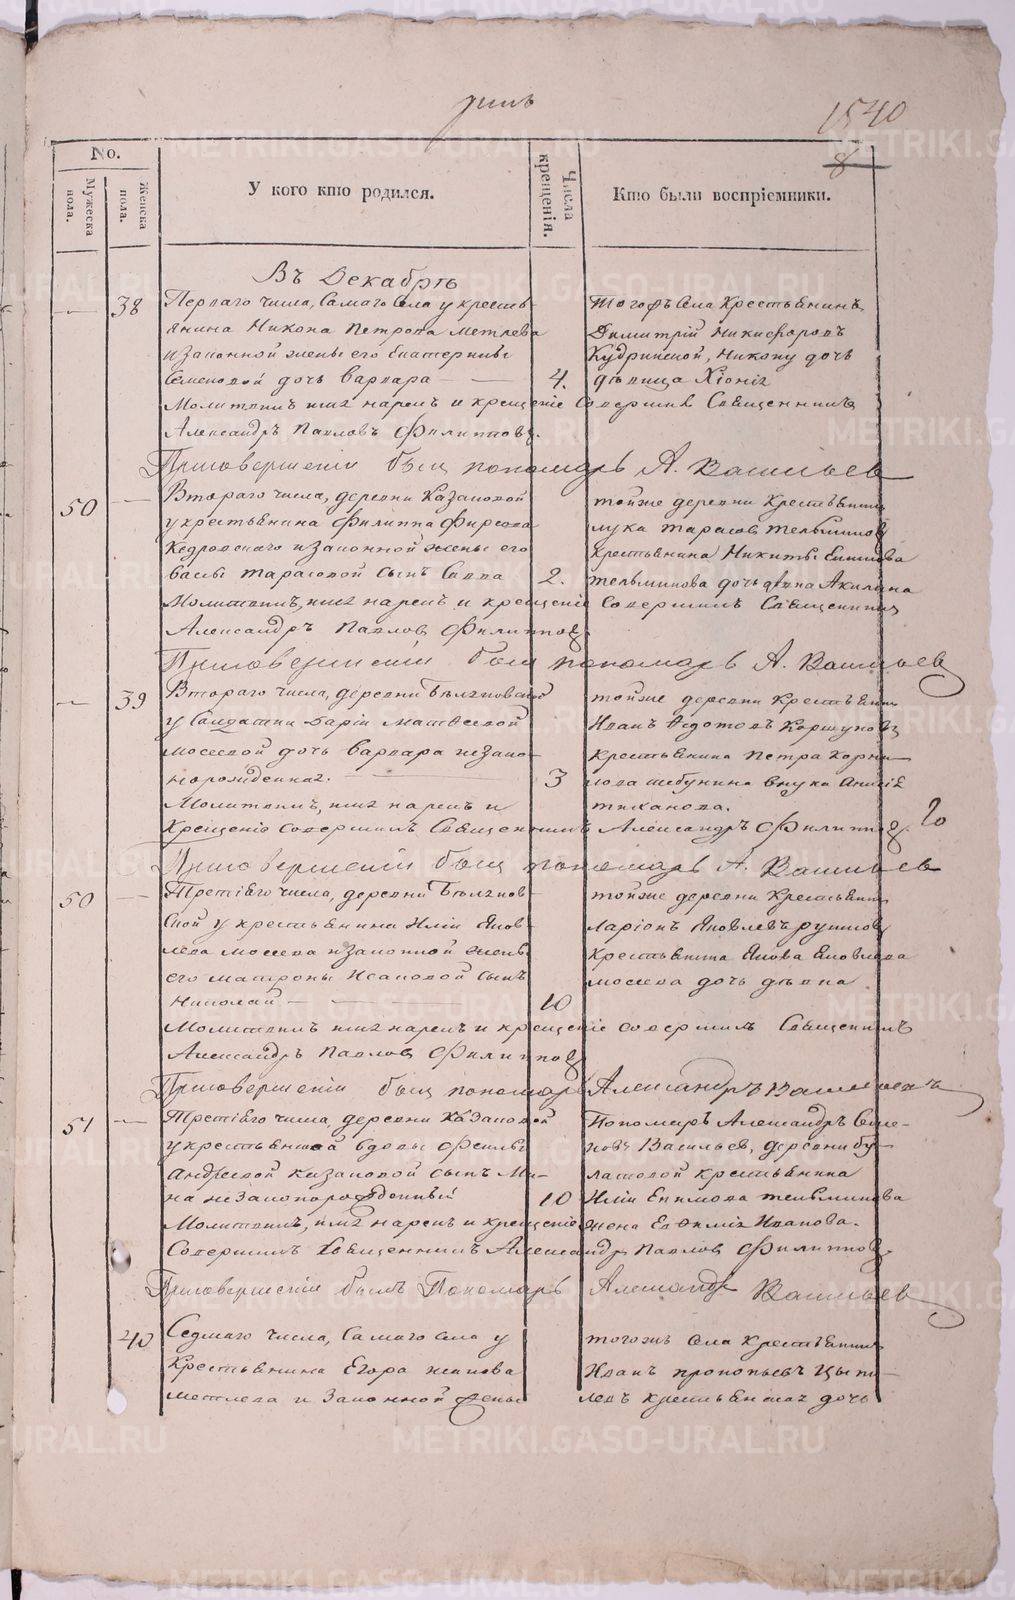 1540
8
No.
Мужеска пола.
Женска пола.
У кого кто родился.
Числа крещенія.
Кто были воспріемники.
Въ Декабрѣ
38 Перваго числа, самаго села у кресть-
янина Никона Петрова Метлева
и законной жены его Екатерины
Семеновой дочь Варвара 4.
Тогожъ села Крестьянинъ
Димитрій Никифоровъ
Кудринской, Никону дочь
дѣвица Хіонія
Молитвилъ имя нарекъ и крещеніе совершилъ Священникъ
Александръ Павловъ Филипповъ.
При совершеніи былъ пономарь А. Васильев
50 Втораго числа, деревни Казаковой
у крестьянина Филиппа Фирсова
Кедровскаго и законной жены его
Васы Тарасовой сынъ Савва 2.
тойже деревни крестьянинъ
Лука Тарасов Тельминов
крестьянина Никиты Екимова
тельминова дочь дѣвка Акилина
Молитвилъ, имя нарекъ и крещеніе совершилъ Священникъ
Александръ Павлов Филиппов
При совершеніи былъ пономарь А. Васильев
39 Втораго числа, деревни
у Солдатки Даріи Матвѣевой
Мосеевой дочь Варвара незако-
норожденная. 3
тойже деревни крестьянинъ
Иванъ Ѳедотовъ Коршунов
крестьянина Петра Корни-
лова Шебунина внука Анисія
тиханова.
Молитвилъ, имя нарекъ и
крещеніе совершилъ Священникъ Александръ Филиппов.
При совершеніи былъ пономарь А. Васильев
50 Третіяго числа, деревни
ской у крестьянина Иліи Яков-
лева Мосеева и законной жены
его Матроны Исаковой сынъ
Николай 10
тойже деревни крестьянинъ
Ларіонъ Яковлевъ
крестьянина Якова Яковлева
мосеева дочь дѣвка
Молитвилъ имя нарекъ и крещеніе совершилъ Священникъ
Александръ Павлов Филиппов
При совершеніи былъ пономарь Александръ Васильевъ
51 Третіяго числа, деревни Казаковой
у крестьянской вдовы
Андреевой Казаковой сынъ Ми-
на незаконорожденный 10
Пономарь Александръ
Васильев, деревни Бу-
латовой крестьянина
Иліи Екимова тельминова
жена Евѳимія Иванова.
Молитвилъ, имя нарекъ и крещеніе
совершилъ Священникъ Александръ Павлов Филиппов.
При совершеніи былъ Пономарь Александръ Васильев
40 Седмаго числа, самаго села у
Крестьянина Егора
Метлева и законной жены
тогожъ села крестьянинъ
Иванъ прокопьевъ Цыпи-
левъ крестьянская дочь